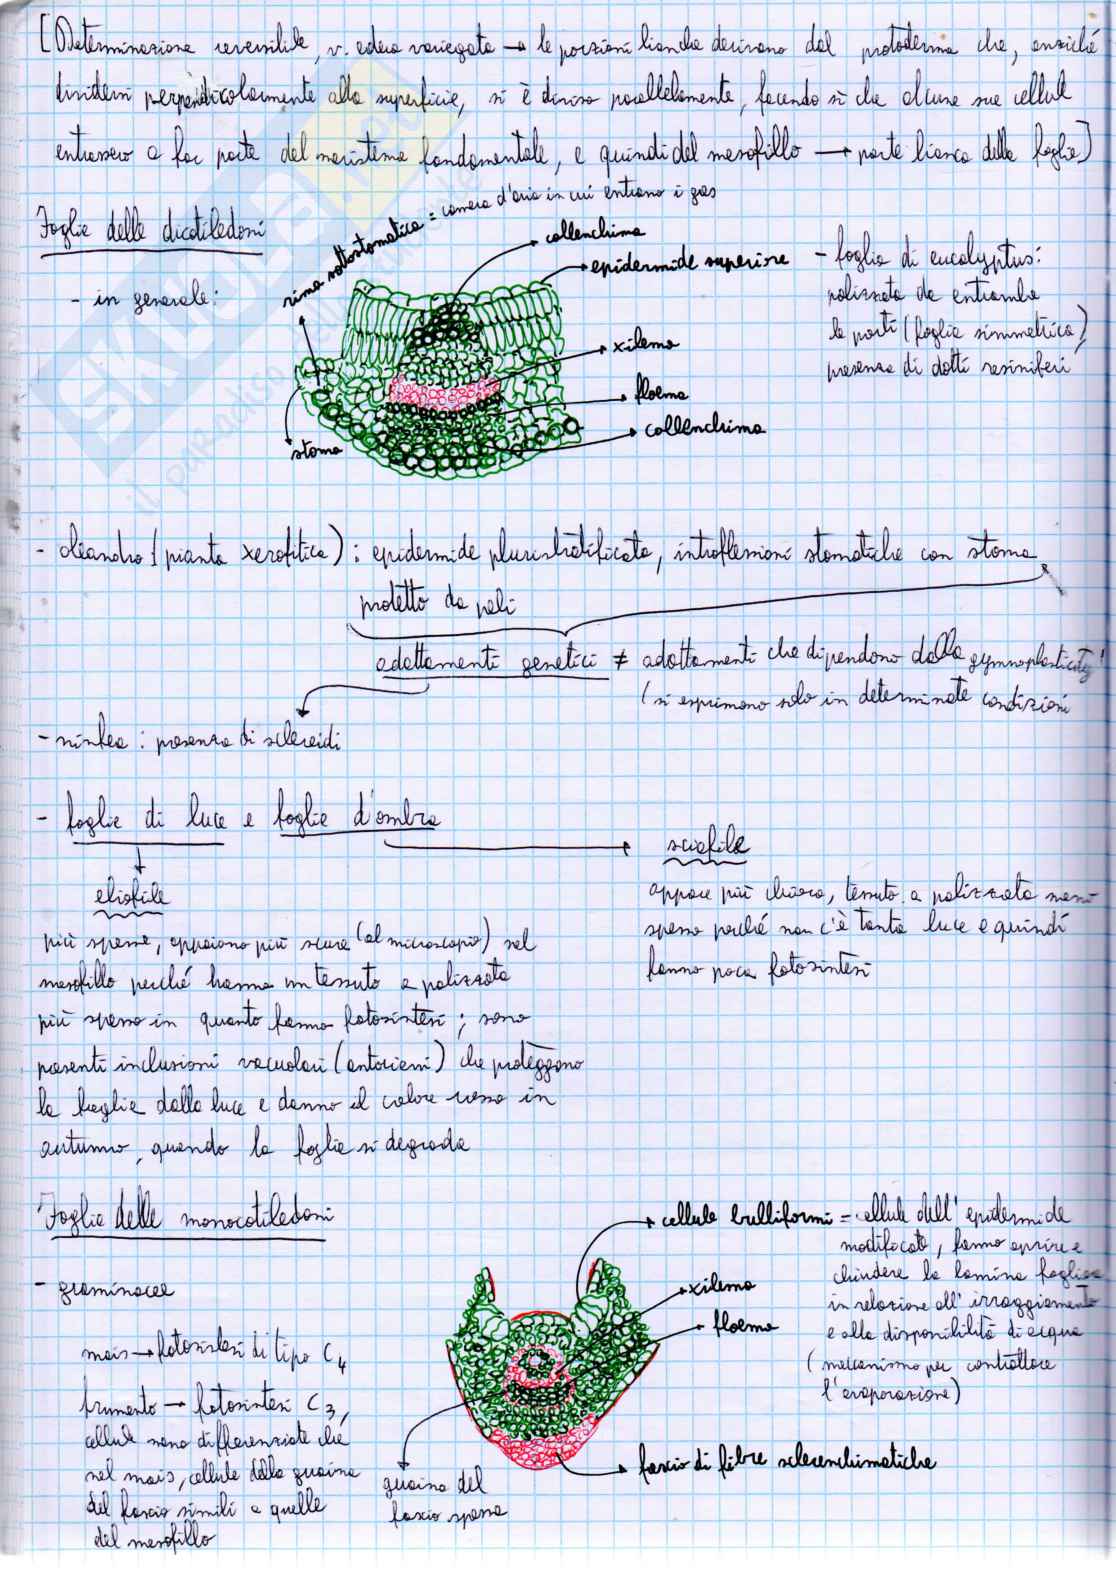 [Determinazione reversibile, v. edera variegata → le porzioni bianche derivano dal protoderma che, anziché
dividersi perpendicolarmente alla superficie, si è diviso parallelamente, facendo sì che alcune sue cellule
entrassero a far parte del meristema fondamentale, e quindi del mesofillo → parte bianca della foglia]
Foglie delle dicotiledoni
- in generale:
rima sottostomatica = camera d'aria in cui entrano i gas
collenchima
epidermide superiore
xilema
floema
collenchima
stoma
- foglia di eucalyptus:
palizzata da entrambe
le parti (foglia simmetrica)
presenza di dotti resiniferi
- oleandro (pianta xerofitica): epidermide pluristratificata, introflessioni stomatiche con stoma
protetto da peli
adattamenti genetici ≠ adattamenti che dipendono dalla
(si esprimono solo in determinate condizioni
- ninfea: presenza di sclereidi
- foglie di luce e foglie d'ombra
eliofile
più spesse, appaiono più scure (al microscopio) nel
mesofillo perché hanno un tessuto a palizzata
più spesso in quanto fanno fotosintesi; sono
presenti inclusioni vacuolari (antociani) che proteggono
la foglia dalla luce e danno il colore rosso in
autunno, quando la foglia si degrada
sciafile
appare più chiaro, tessuto a palizzata meno
spesso perché non c'è tanta luce e quindi
fanno poca fotosintesi
Foglie delle monocotiledoni
- graminacee
mais → fotosintesi di tipo C4
frumento → fotosintesi C3,
cellule meno differenziate che
nel mais, cellule della guaina
del fascio simili a quelle
del mesofillo
cellule bulliformi = cellule dell'epidermide
modificate, fanno aprire e
chiudere la lamina fogliare
in relazione all'irraggiamento
e alla disponibilità di acqua
(meccanismo per controllare
l'evaporazione)
xilema
floema
fascio di fibre sclerenchimatiche
guaina del
fascio spessa
SKUOLA
il paradiso dello studente